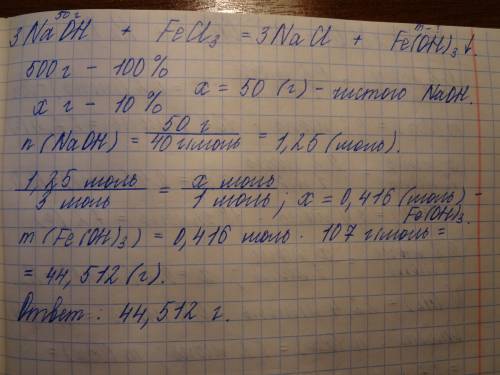 50 г m - ?
3NaOH + FeCl3 = 3NaCl + Fe(OH)3↓.
500 г - 100%
x г - 10% x = 50 (г) - чистого NaOH.
n (NaOH) = 50 г / 40 г/моль = 1,25 (моль).
1,25 моль / 3 моль = x моль / 1 моль ; x = 0,416 (моль) - Fe(OH)3.
m (Fe(OH)3) = 0,416 моль · 107 г/моль =
= 44,512 (г).
Ответ: 44,512 г.